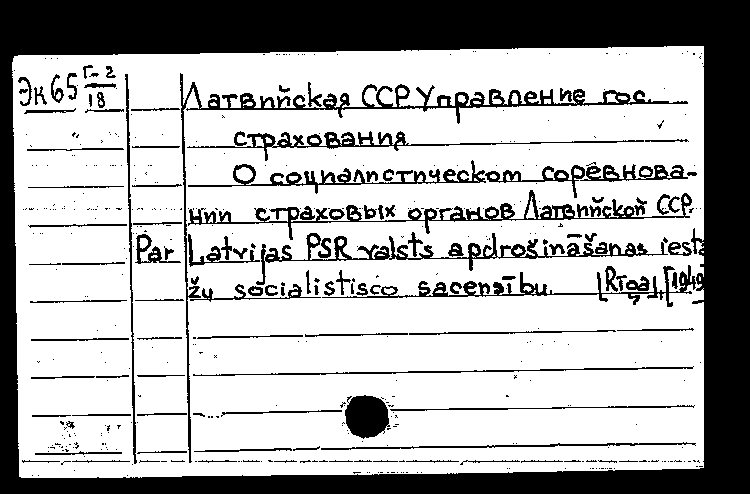 Эк65 Г-2/18
Латвийская ССР Управление гос.
страхования
О социалистическом соревнова-
нии страховых органов Латвийской ССР.
Par Latvijas PSR valsts apdrošināšanas iestā
žu sociālistisco sacensību. [Rīga], [1949